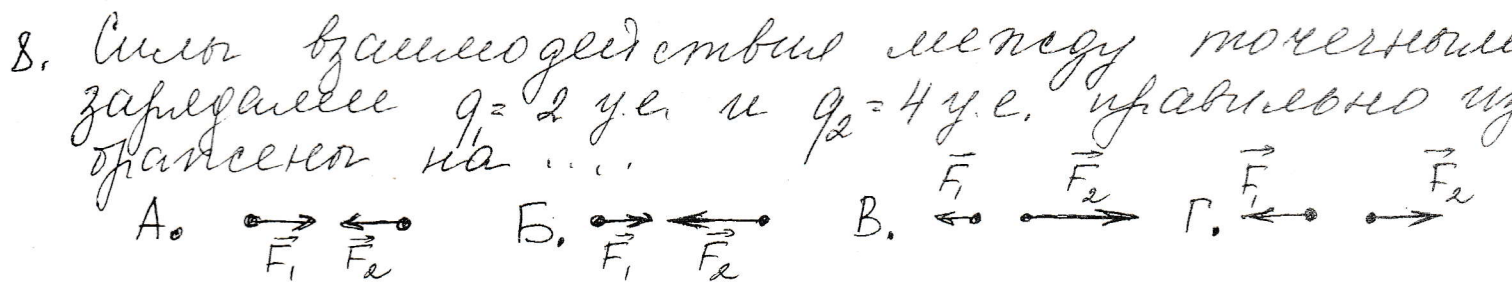 8. Силы взаимодействия между точечными
зарядами q₁= 2 у.е. и q₂= 4 у.е. правильно из
ображены на ....
А. F₁ F₂ Б. F₁ F₂ В. F₁ F₂ Г. F₁ F₂